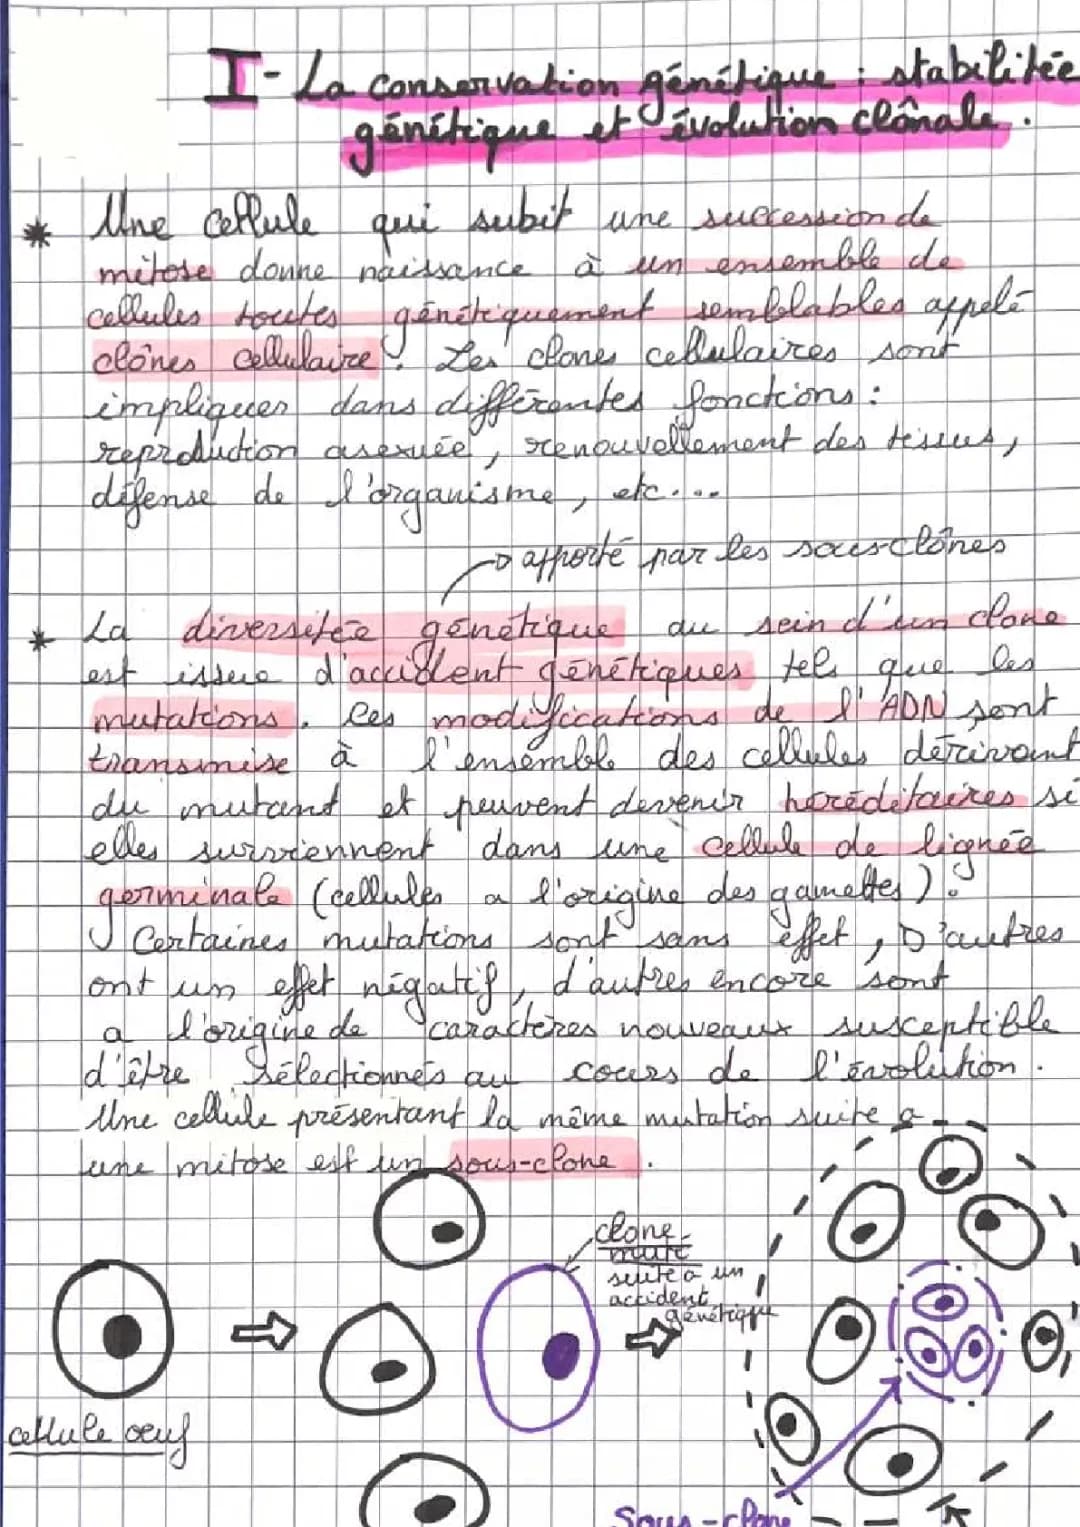 I - La conservation génétique : stabilitée
génétique et évolution clônale.
* Une cellule qui subit une succession de
mitose donne naissance à un ensemble de
cellules toutes génétiquement semblables appelé
clônes cellulaire. Les clones cellulaires sont
impliquer dans différentes fonctions :
reproduction asexuée, renouvellement des tissus,
défense de l'organisme, etc...
→ apporté par les sous-clônes
* La diversitée génétique au sein d'un clone
est issue d'accident génétiques tels que les
mutations. Ces modifications de l'ADN sont
transmise à l'ensemble des cellules dérivant
du mutant et peuvent devenir héréditaires si
elles surviennent dans une cellule de lignée
germinale (cellules a l'origine des gamettes).
Certaines mutations sont sans effet, D'autres
ont un effet négatif, d'autres encore sont
a l'origine de caractères nouveaux susceptible
d'être sélectionnés au cours de l'évolution.
Une cellule présentant la même mutation suite a
une mitose est un sous-clone.
clone
muté
suite a un
accident
génétique
cellule oeuf
Sous-clone